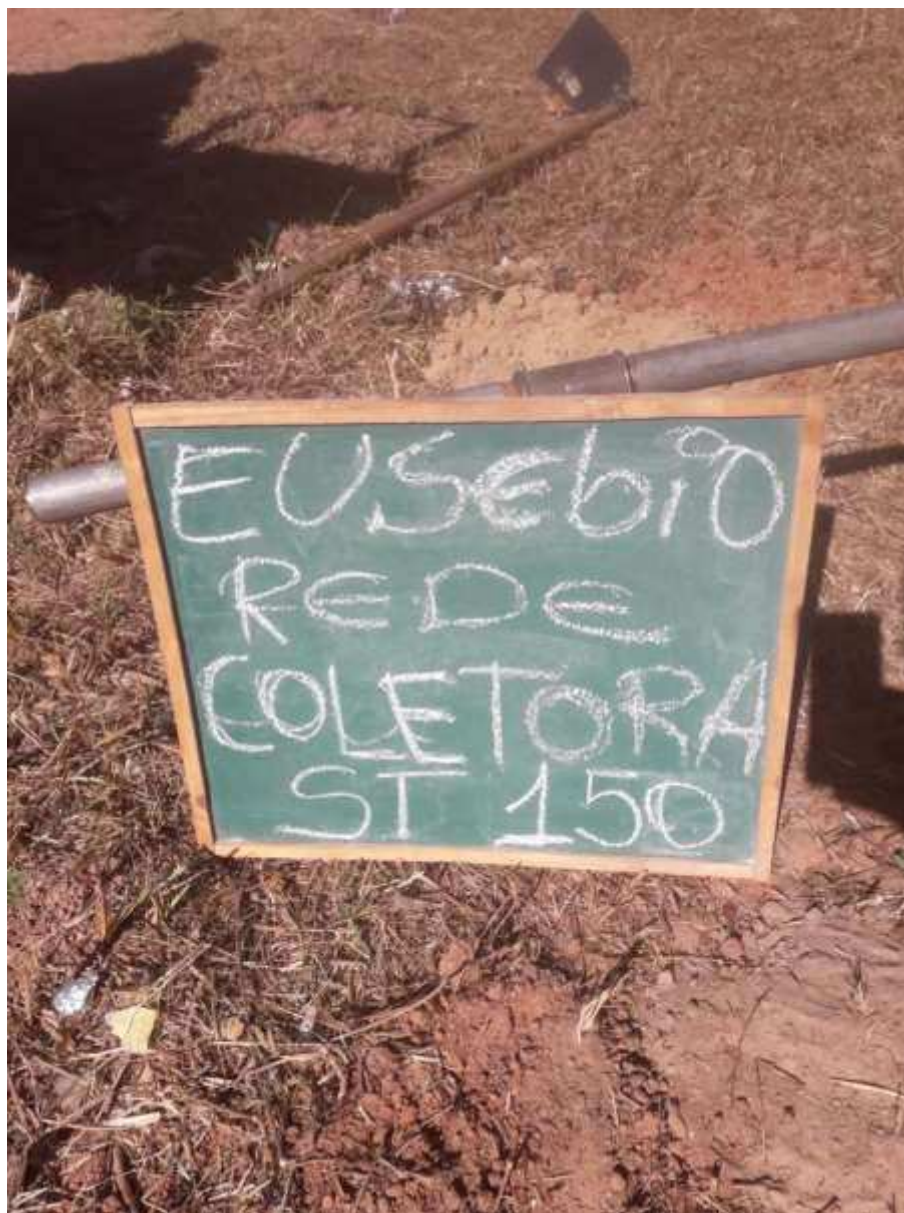 EUSEbiO
REDE
COLETORA
ST 150